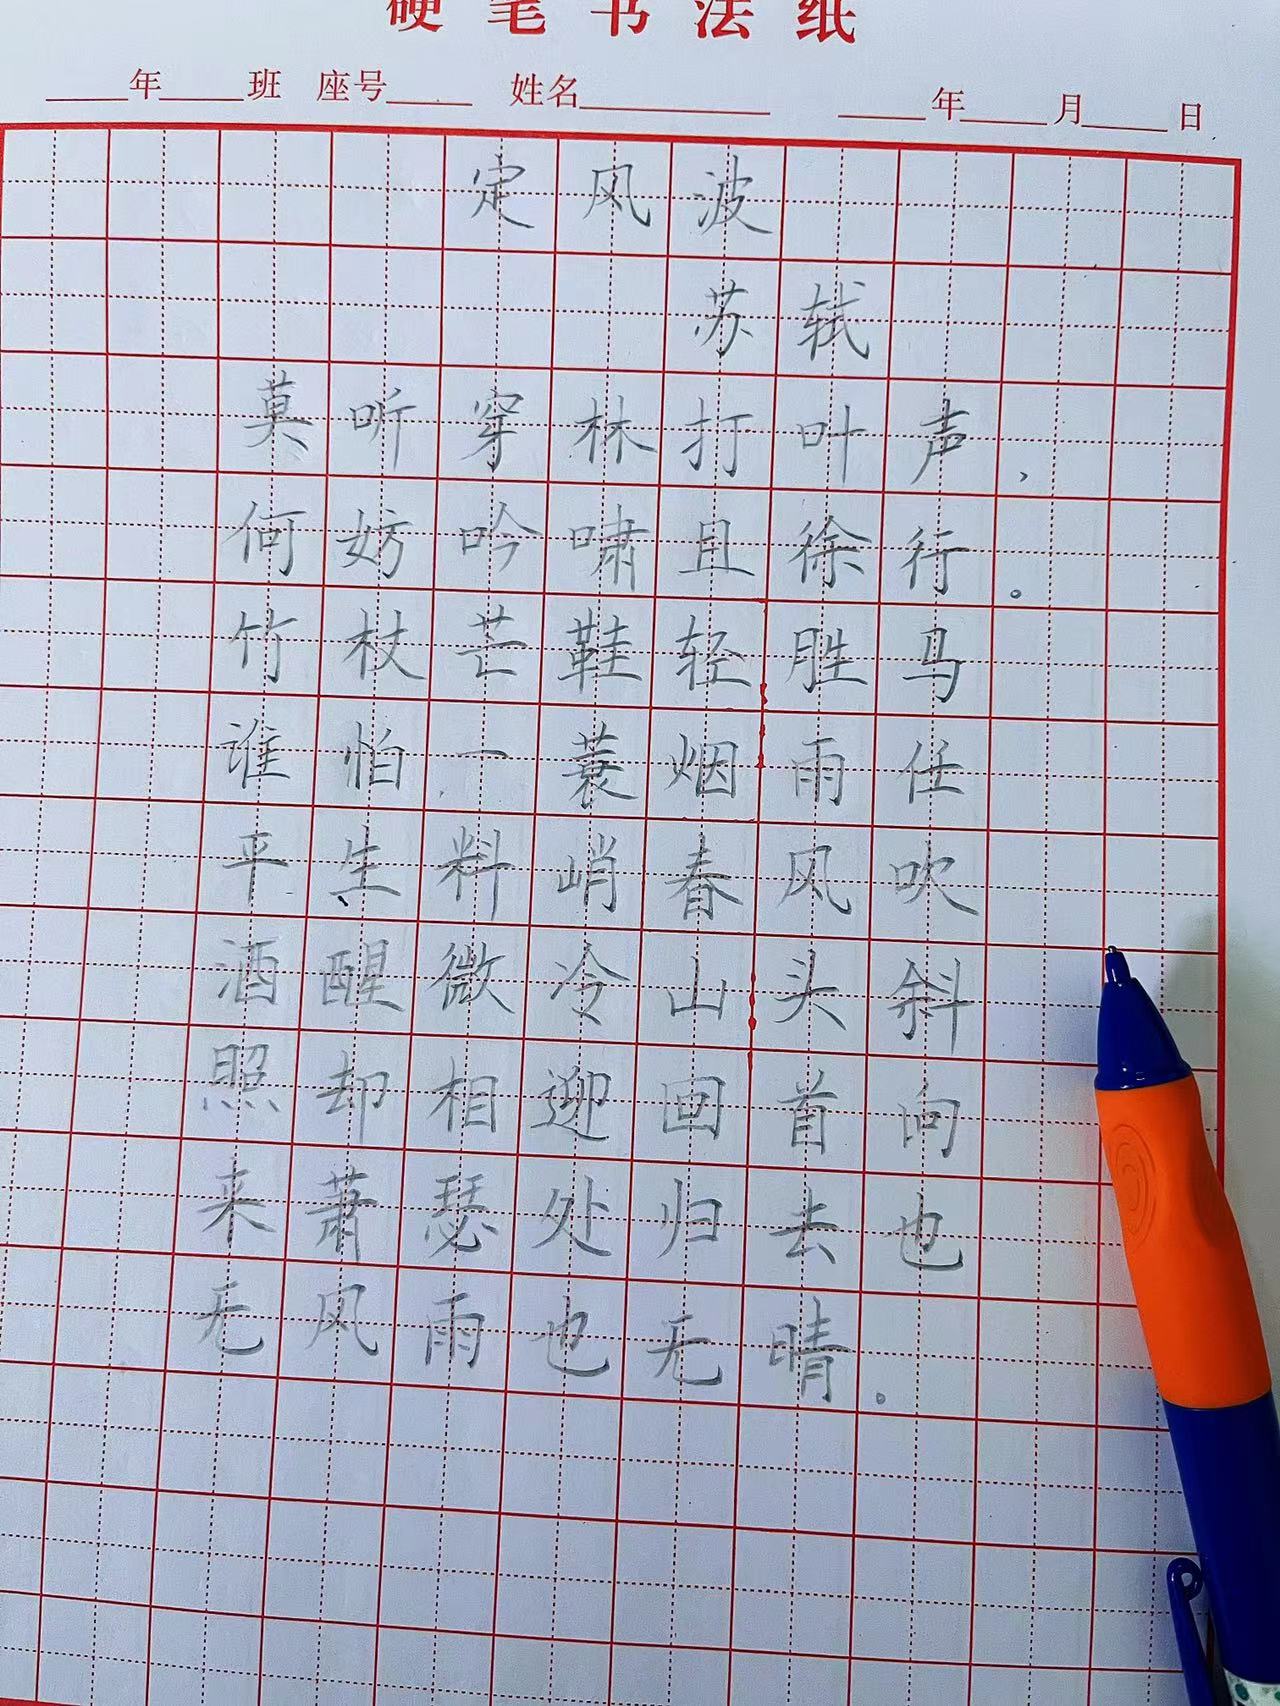 硬笔书法纸
年 班 座号 姓名 年 月 日
定风波
苏轼
莫听穿林打叶声，
何妨吟啸且徐行。
竹杖芒鞋轻胜马
谁怕一蓑烟雨任
平生料峭春风吹
酒醒微冷山头斜
照却相迎回首向
来萧瑟处归去也
无风雨也无晴。